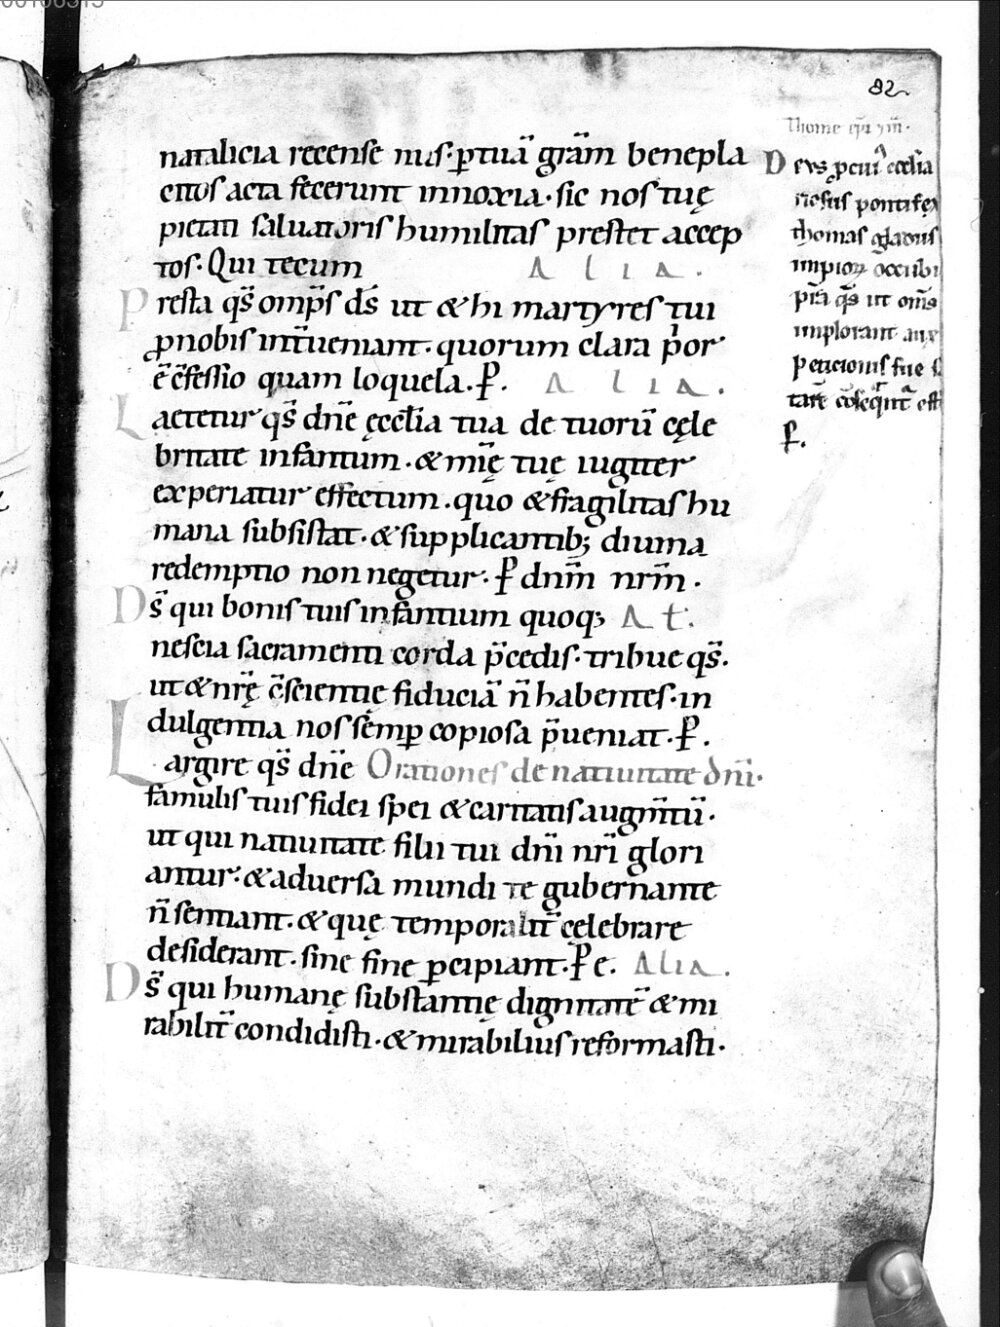 82
natalicia recense nus· ꝑ tuā grām benepla
citos acta fecerunt innoxia· sic nos tuę
pietati saluatoris humilitas prestet accep
tos· Qui tecum Alia.
Presta qs̄ omp̄s ds̄ ut & hi martyres tui
ꝓ nobis int̄ueniant· quorum clara p̍or
ē c̄fessio quam loquela. P̱. Alia.
Laetetur qs̄ dnē ęccl̄ia tua de tuorū cęle
britate infantum· & mīę tuę iugiter
experiatur effectum· quo & fragilitas hu
mana subsistat· & supplicantib; diuina
redemptio non negetur· P̱ dnm̄ nrm̄.
Ds̄ qui bonis tuis infantium quoq; At.
nescia sacramenti corda p̄cedis· tribue qs̄.
ut & nrę̄ c̄scientię fiduciā n̄ habentes· in
dulgentia nos semꝑ copiosa p̄ueniat· P̱.
Largire qs̄ dnē Orationes de natiuitate dn̄i·
famulis tuis fidei spei & caritatis augm̄tū·
ut qui natiuitate filii tui dn̄i nr̄i glori
antur· & aduersa mundi te gubernante
n̄ sentiant· & quę temporalit̄ cęlebrare
desiderant· sine fine ꝑcipiant· P̱ e. Alia.
Ds̄ qui humanę substantię dignitatē & mi
rabilit̄ condidisti· & mirabilius reformasti·
Thome
Deus ꝓ cui' eccl̄ia
pontifex
thomas gladiis
impioꝝ occubu
p̄ta qs̄ ut om̄s
implorant aux
peticionis sue
tarē c̄seqnt̄ eff
P̱.